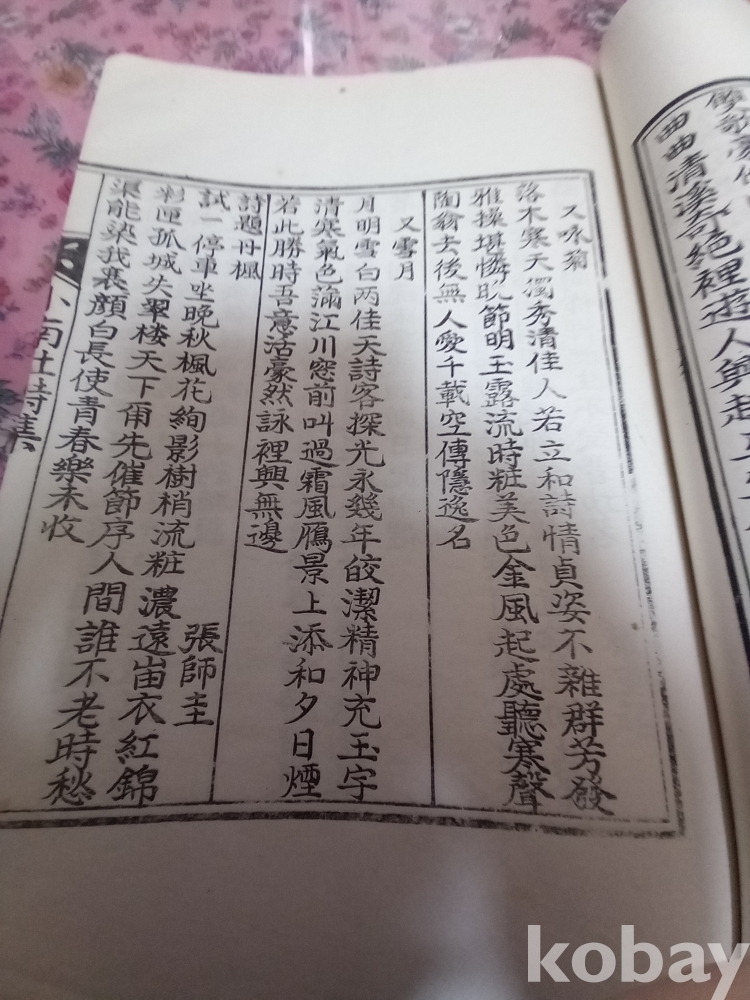 曲曲清溪奇絕裡遊人興起
又咏菊
落木寒天獨秀清佳人若立和詩情貞姿不雜群芳發
雅操堪憐晩節明玉露流時粧美色金風起處聽寒聲
陶翁去後無人愛千載空傳隱逸名
又雪月
月明雪白两佳天詩客探光永幾年皎潔精神充玉宇
清寒氣色滿江川窓前叫過霜風鴈景上添和夕日煙
若此勝時吾意活豪然詠裡興無邊
詩題丹楓 張師圭
試一停車坐晩秋楓花絢影樹梢流粧濃遠峀衣紅錦
彩匝孤城失翠楼天下爾先催節序人間誰不老時愁
渠能染我衰顏白長使青春樂未收
小南社詩集
kobay